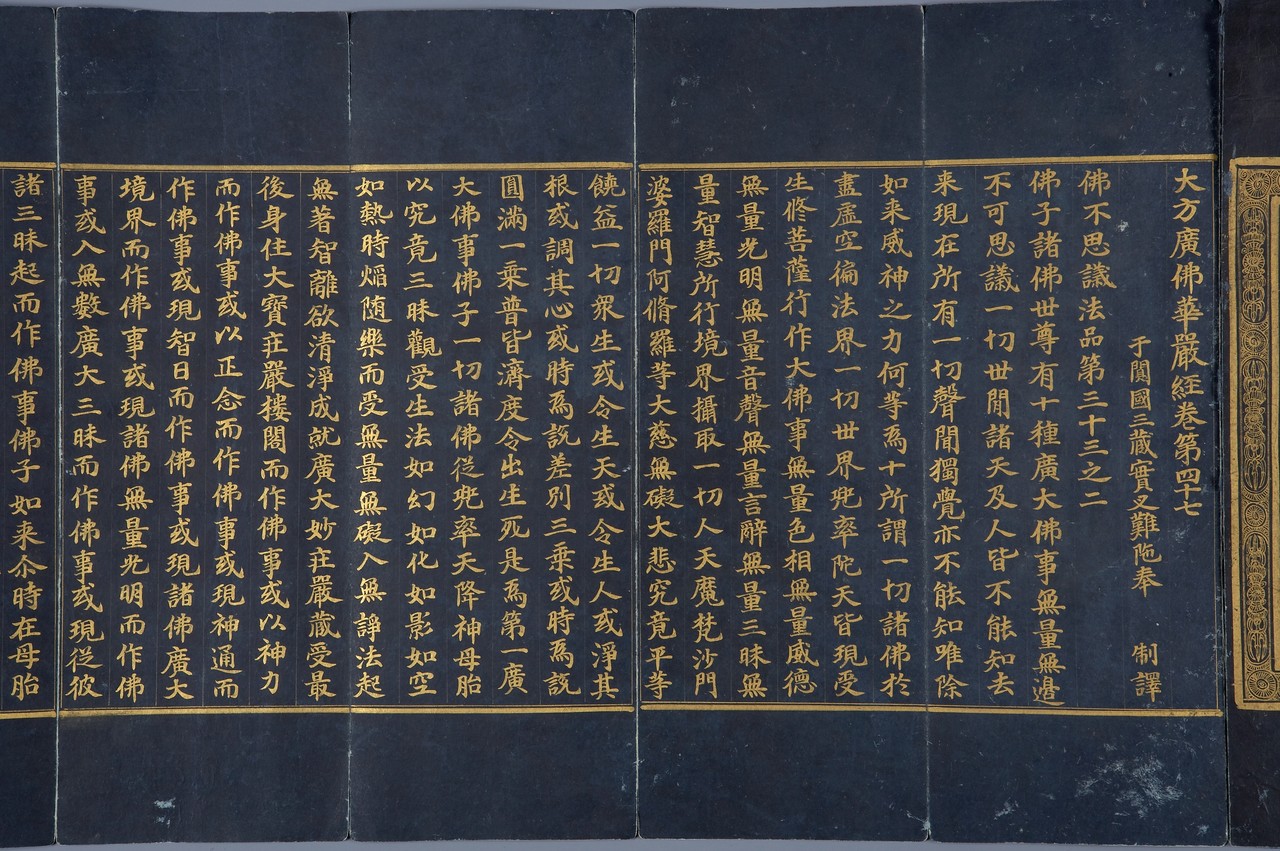 大方廣佛華嚴經卷第四十七
于闐國三藏實叉難陁奉　制譯
佛不思議法品第三十三之二
佛子諸佛世尊有十種廣大佛事無量無邊
不可思議一切世間諸天及人皆不能知去
来現在所有一切聲聞獨覺亦不能知唯除
如来威神之力何等爲十所謂一切諸佛於
盡虛空徧法界一切世界兜率陀天皆現受
生修菩薩行作大佛事無量色相無量威德
無量光明無量音聲無量言辭無量三昧無
量智慧所行境界攝取一切人天魔梵沙門
婆羅門阿脩羅等大慈無礙大悲究竟平等
饒益一切衆生或令生天或令生人或淨其
根或調其心或時爲說差別三乘或時爲說
圓滿一乘普皆濟度令出生死是爲第一廣
大佛事佛子一切諸佛從兜率天降神母胎
以究竟三昧觀受生法如幻如化如影如空
如熱時熖随樂而受無量無礙入無諍法起
無著智離欲清淨成就廣大妙莊嚴藏受最
後身住大寶莊嚴樓閣而作佛事或以神力
而作佛事或以正念而作佛事或現神通而
作佛事或現智日而作佛事或現諸佛廣大
境界而作佛事或現諸佛無量光明而作佛
事或入無數廣大三昧而作佛事或現從彼
諸三昧起而作佛事佛子如来尒時在母胎